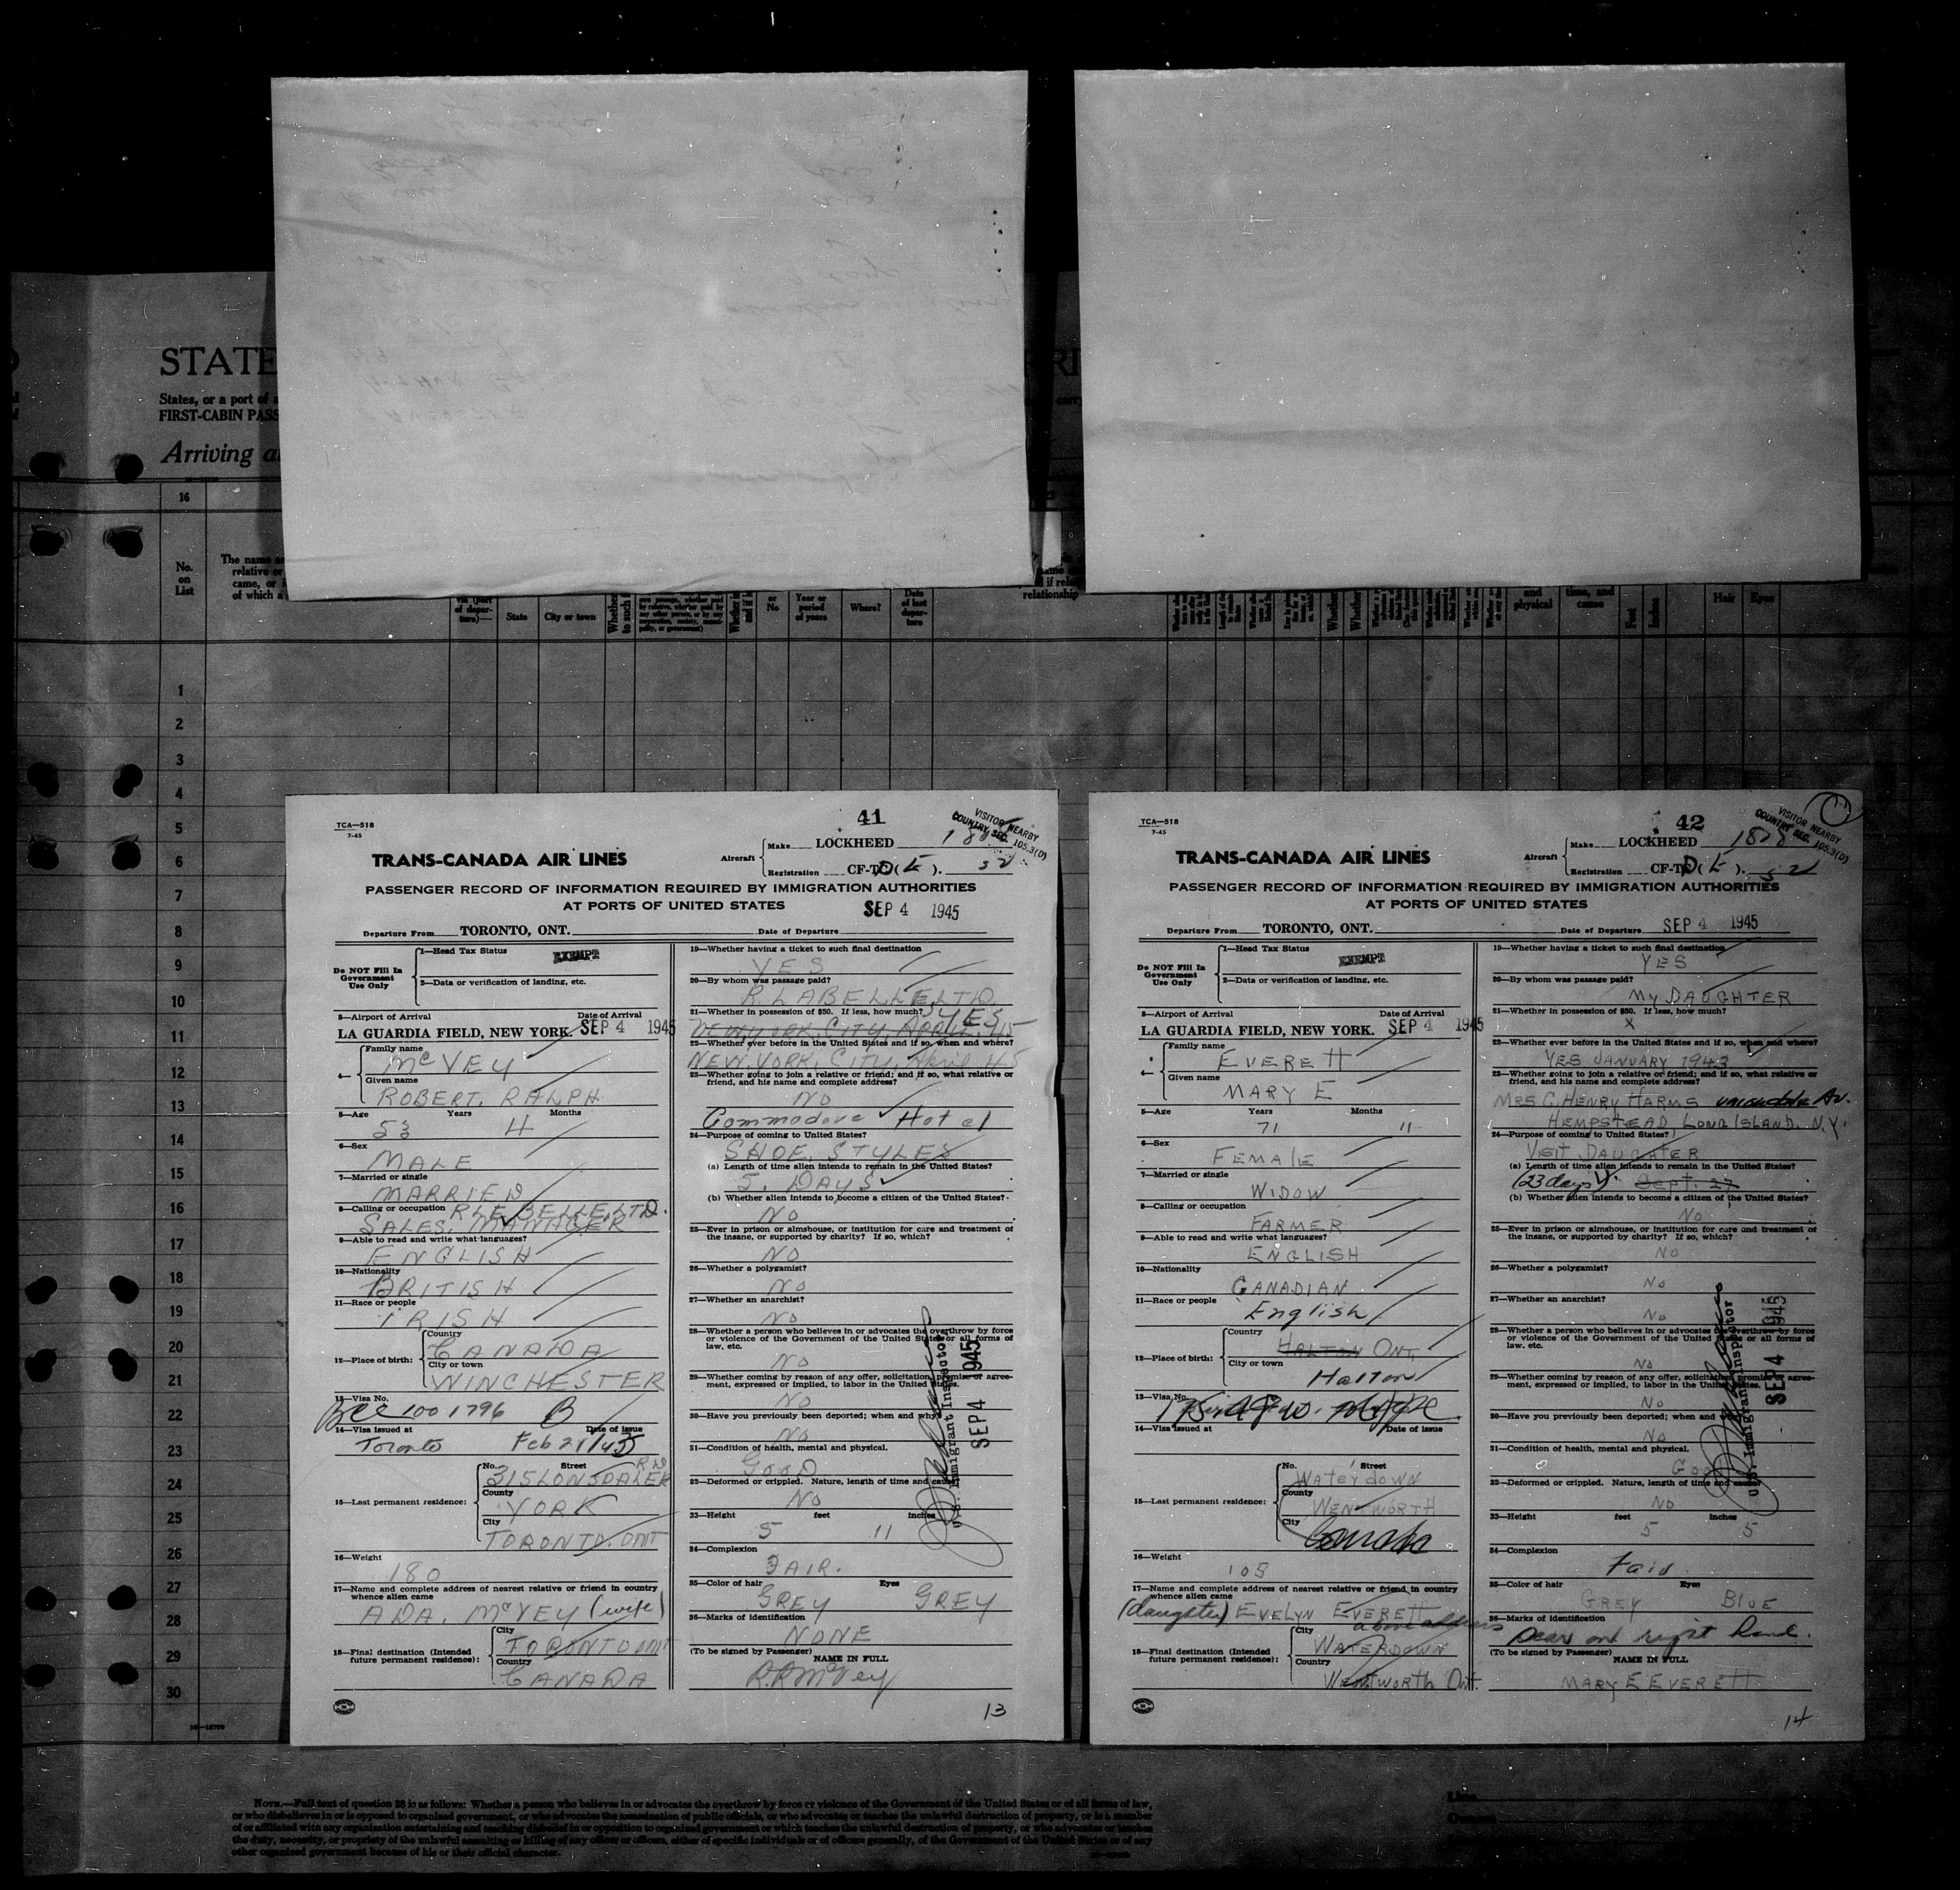 STATE
States, or a port of a
FIRST-CABIN PASS
Arriving a
16
No.
on
List
The name
relative or
came, or
of which a
State
City or town
or
No
Year or
period
of years
Where?
Date
of last
depar-
ture
relationship
and
physical
time, and
cause
Feet
Inches
Hair
Eyes
1
2
3
4
5
6
7
8
9
10
11
12
13
14
15
16
17
18
19
20
21
22
23
24
25
26
27
28
29
30
TCA—518
7-45
41
VISITOR NEARBY
COUNTRY SEC. 105.3(D)
TRANS-CANADA AIR LINES
Aircraft
Make LOCKHEED
Registration CF-T
PASSENGER RECORD OF INFORMATION REQUIRED BY IMMIGRATION AUTHORITIES
AT PORTS OF UNITED STATES
SEP 4 1945
Departure From TORONTO, ONT. Date of Departure
Do NOT Fill In
Government
Use Only
1—Head Tax Status
EXEMPT
2—Data or verification of landing, etc.
3—Airport of Arrival Date of Arrival
LA GUARDIA FIELD, NEW YORK. SEP 4 1945
4—
Family name
McVEY
Given name
ROBERT. RALPH
5—Age Years Months
53 4
6—Sex
MALE
7—Married or single
MARRIED
8—Calling or occupation RLEBELLE.LTD.
SALES. MANAGER
9—Able to read and write what languages?
ENGLISH
10—Nationality
BRITISH
11—Race or people
IRISH
12—Place of birth:
Country
CANADA
City or town
WINCHESTER
13—Visa No.
BCC 1001796 B
14—Visa issued at Date of issue
Toronto Feb 28/45
15—Last permanent residence:
No. Street
315 LONSDALE RD
County
YORK
City
TORONTO. ONT
16—Weight
180
17—Name and complete address of nearest relative or friend in country
whence alien came
ADA. McVEY (wife)
18—Final destination (Intended
future permanent residence):
City
TORONTO ONT
Country
CANADA
19—Whether having a ticket to such final destination
YES
20—By whom was passage paid?
R. LABELLE LTD
21—Whether in possession of $50. If less, how much? YES
NEW YORK. CITY, APRIL. 45
22—Whether ever before in the United States and if so, when and where?
NEW. YORK. CITY, April 45
23—Whether going to join a relative or friend; and if so, what relative or
friend, and his name and complete address?
NO
Commodore Hotel
24—Purpose of coming to United States?
SHOE. STYLES
(a) Length of time alien intends to remain in the United States?
5. DAYS
(b) Whether alien intends to become a citizen of the United States?
NO
25—Ever in prison or almshouse, or institution for care and treatment of
the insane, or supported by charity? If so, which?
NO
26—Whether a polygamist?
NO
27—Whether an anarchist?
NO
28—Whether a person who believes in or advocates the overthrow by force
or violence of the Government of the United States or all forms of
law, etc.
NO
29—Whether coming by reason of any offer, solicitation, promise or agree-
ment, expressed or implied, to labor in the United States.
NO
30—Have you previously been deported; when and why?
NO
31—Condition of health, mental and physical.
GOOD
32—Deformed or crippled. Nature, length of time and cause.
NO
33—Height feet inches
5 11
34—Complexion
FAIR.
35—Color of hair Eyes
GREY GREY
36—Marks of identification
NONE
(To be signed by Passenger) NAME IN FULL
R.R.McVey
U.S. Immigrant Inspector
SEP 4 1945
13
TCA—518
7-45
42
VISITOR NEARBY
COUNTRY SEC. 105.3(D)
TRANS-CANADA AIR LINES
Aircraft
Make LOCKHEED
Registration CF-T
PASSENGER RECORD OF INFORMATION REQUIRED BY IMMIGRATION AUTHORITIES
AT PORTS OF UNITED STATES
Departure From TORONTO, ONT. Date of Departure SEP 4 1945
Do NOT Fill In
Government
Use Only
1—Head Tax Status
EXEMPT
2—Data or verification of landing, etc.
3—Airport of Arrival Date of Arrival
LA GUARDIA FIELD, NEW YORK. SEP 4 1945
4—
Family name
EVERETT
Given name
MARY E
5—Age Years Months
71 11
6—Sex
FEMALE
7—Married or single
WIDOW
8—Calling or occupation
FARMER
9—Able to read and write what languages?
ENGLISH
10—Nationality
CANADIAN
11—Race or people
English
12—Place of birth:
Country
HALTON ONT.
City or town
Halton
13—Visa No.
14—Visa issued at Date of issue
15—Last permanent residence:
No. Street
Waterdown
County
WENTWORTH
City
Canada
16—Weight
108
17—Name and complete address of nearest relative or friend in country
whence alien came
(daughter) EVELYN EVERETT
above address
18—Final destination (Intended
future permanent residence):
City
WATERDOWN
Country
WENTWORTH Ont.
19—Whether having a ticket to such final destination
YES
20—By whom was passage paid?
My DAUGHTER
21—Whether in possession of $50. If less, how much?
X
22—Whether ever before in the United States and if so, when and where?
YES JANUARY 1943
23—Whether going to join a relative or friend; and if so, what relative or
friend, and his name and complete address?
MRS C. HENRY HARMS Av.
HEMPSTEAD, LONG ISLAND. N.Y.
24—Purpose of coming to United States?
VISIT DAUGHTER
(a) Length of time alien intends to remain in the United States?
(23 days) Sept. 27
(b) Whether alien intends to become a citizen of the United States?
No
25—Ever in prison or almshouse, or institution for care and treatment of
the insane, or supported by charity? If so, which?
No
26—Whether a polygamist?
No
27—Whether an anarchist?
No
28—Whether a person who believes in or advocates the overthrow by force
or violence of the Government of the United States or all forms of
law, etc.
No
29—Whether coming by reason of any offer, solicitation, promise or agree-
ment, expressed or implied, to labor in the United States.
No
30—Have you previously been deported; when and why?
No
31—Condition of health, mental and physical.
Good
32—Deformed or crippled. Nature, length of time and cause.
No
33—Height feet inches
5 5
34—Complexion
Fair
35—Color of hair Eyes
GREY BLUE
36—Marks of identification
Scar on right hand.
(To be signed by Passenger) NAME IN FULL
MARY E EVERETT
U.S. Immigrant Inspector
SEP 4 1945
14
NOTE.—Full text of question 28 is as follows: Whether a person who believes in or advocates the overthrow by force or violence of the Government of the United States or of all forms of law,
or who disbelieves in or is opposed to organized government, or who advocates the assassination of public officials, or who advocates or teaches the unlawful destruction of property, or is a member
of or affiliated with any organization entertaining and teaching disbelief in or opposition to organized government or which teaches the unlawful destruction of property, or who advocates or teaches
the duty, necessity, or propriety of the unlawful assaulting or killing of any officer or officers, either of specific individuals or of officers generally, of the Government of the United States or of any
other organized government because of his or their official character.
Line
Owners